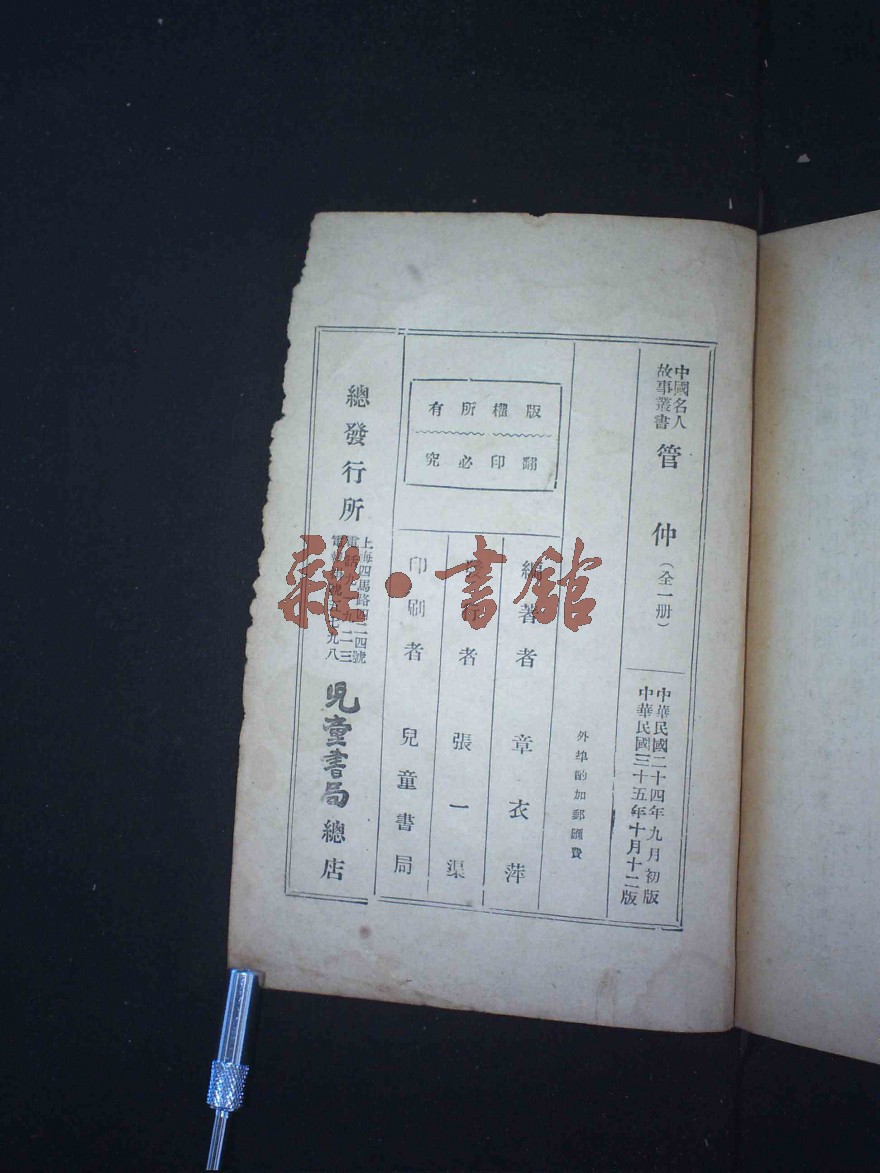 中國名人
故事叢書
管仲(全一册)
中華民國二十四年九月初版
中華民國三十五年十月十二版
外埠酌加郵匯費
版權所有
翻印必究
編著者 章衣萍
發行者 張一渠
印刷者 兒童書局
總發行所
上海四馬路四二四號
兒童書局總店
雜·書館